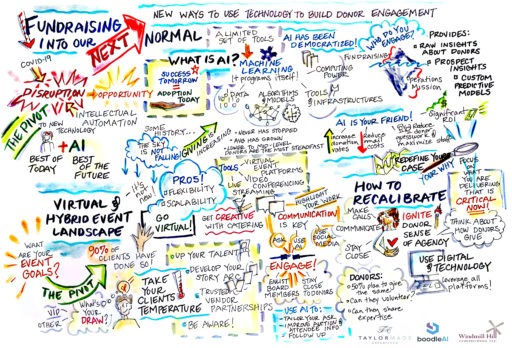 NEW WAYS TO USE TECHNOLOGY TO BUILD DONOR ENGAGEMENT
FUNDRAISING
INTO OUR
NEXT
NORMAL
COVID-19
DISRUPTION
OPPORTUNITY
THE PIVOT
TO NEW
TECHNOLOGY
INTELLECTUAL
AUTOMATION
+AI
BEST OF
TODAY
BEST OF THE
FUTURE
WHAT IS AI?
A LIMITED
SET OF TOOLS
SUCCESS
TOMORROW
=
ADOPTION
TODAY
MACHINE
LEARNING
(IT PROGRAMS ITSELF!)
DATA
ALGORITHMS
MODELS
AI HAS BEEN
DEMOCRATIZED!
COMPUTING
POWER
TOOLS
INFRASTRUCTURES
WHO DO YOU
ENGAGE?
FUNDRAISING
OPERATIONS
MISSION
PROVIDES:
RAW INSIGHTS
ABOUT DONORS
PROSPECT
INSIGHTS
CUSTOM
PREDICTIVE
MODELS
SOME
HISTORY...
THE SKY
IS NOT
FALLING!
GIVING IS INCREASING
NEVER HAS STOPPED
AND HAS GROWN
LOWER TO MID-LEVEL
DONORS ARE THE MOST STEADFAST
AI IS YOUR FRIEND!
INCREASE
DONATION
REDUCE
COSTS
REDUCE
GUESSWORK &
MAXIMIZE
REDEFINE YOUR
CASE
YOUR WHY
FOCUS
WHAT
YOU ARE
DELIVERING
THAT IS
CRITICAL
NOW!
THINK ABOUT
HOW DONORS
GIVE
PROS!
FLEXIBILITY
SCALABILITY
TOOLS
VIRTUAL
EVENT
PLATFORMS
LIVE
VIDEO
CONFERENCING
STREAMING
VIRTUAL &
HYBRID EVENT
LANDSCAPE
GO
VIRTUAL!
GET CREATIVE
WITH CATERING
HIGHLIGHT
YOUR WORK
COMMUNICATION
IS KEY
USE
SOCIAL
MEDIA
HOW TO
RECALIBRATE
MAKE
CALLS
COMMUNICATE
STAY
CLOSE
IGNITE
DONOR
SENSE
OF AGENCY
USE DIGITAL
& TECHNOLOGY
LEVERAGE ALL
PLATFORMS!
WHAT ARE
YOUR
EVENT
GOALS?
90% OF
CLIENTS
HAVE DONE
SO!
THE PIVOT
WHAT'S
YOUR
DRAW?
TAKE
YOUR
CLIENTS
TEMPERATURE
UP YOUR TALENT
DEVELOP YOUR
STORY ARC
TRUSTED
VENDOR
PARTNERSHIPS
BE AWARE!
ENGAGE!
ENLIST
BOARD
MEMBERS
STAY
CLOSE
TO DONORS
USE AI TO:
TAILOR YOUR ASK
IMPROVE AUCTION &
ATTENDEE INFO
FOLLOW UP
DONORS:
50% PLAN TO GIVE
THE SAME!
CAN THEY VOLUNTEER?
CAN THEY SHARE
EXPERTISE
TAYLORMADE
boodleAI
Windmill Hill